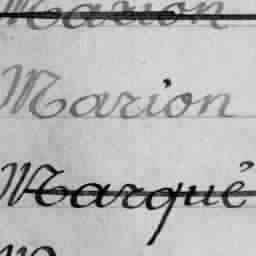 Marion
Marion
Marqué